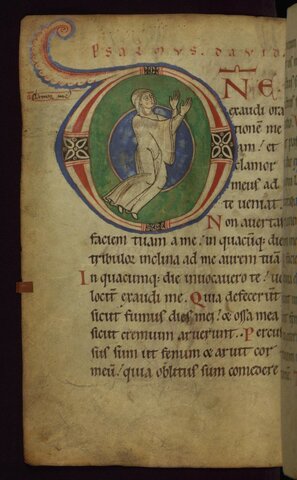 PSALMUS. DAVID.
DNE
exaudi ora
tionē me
am / et
clamor
meus ad
te veniat.
Non avertas
faciem tuam a me / in quacūq; die
tribulor inclina ad me aurem tuā
In quacumq; die invocavero te / v
locit̄ exaudi me. Quia defecerūt
sicut fumus dies mei / & ossa mea
sicut cremium aruerunt. Percus
sus sum ut fenum & aruit cor
meū / quia oblitus sum comedere